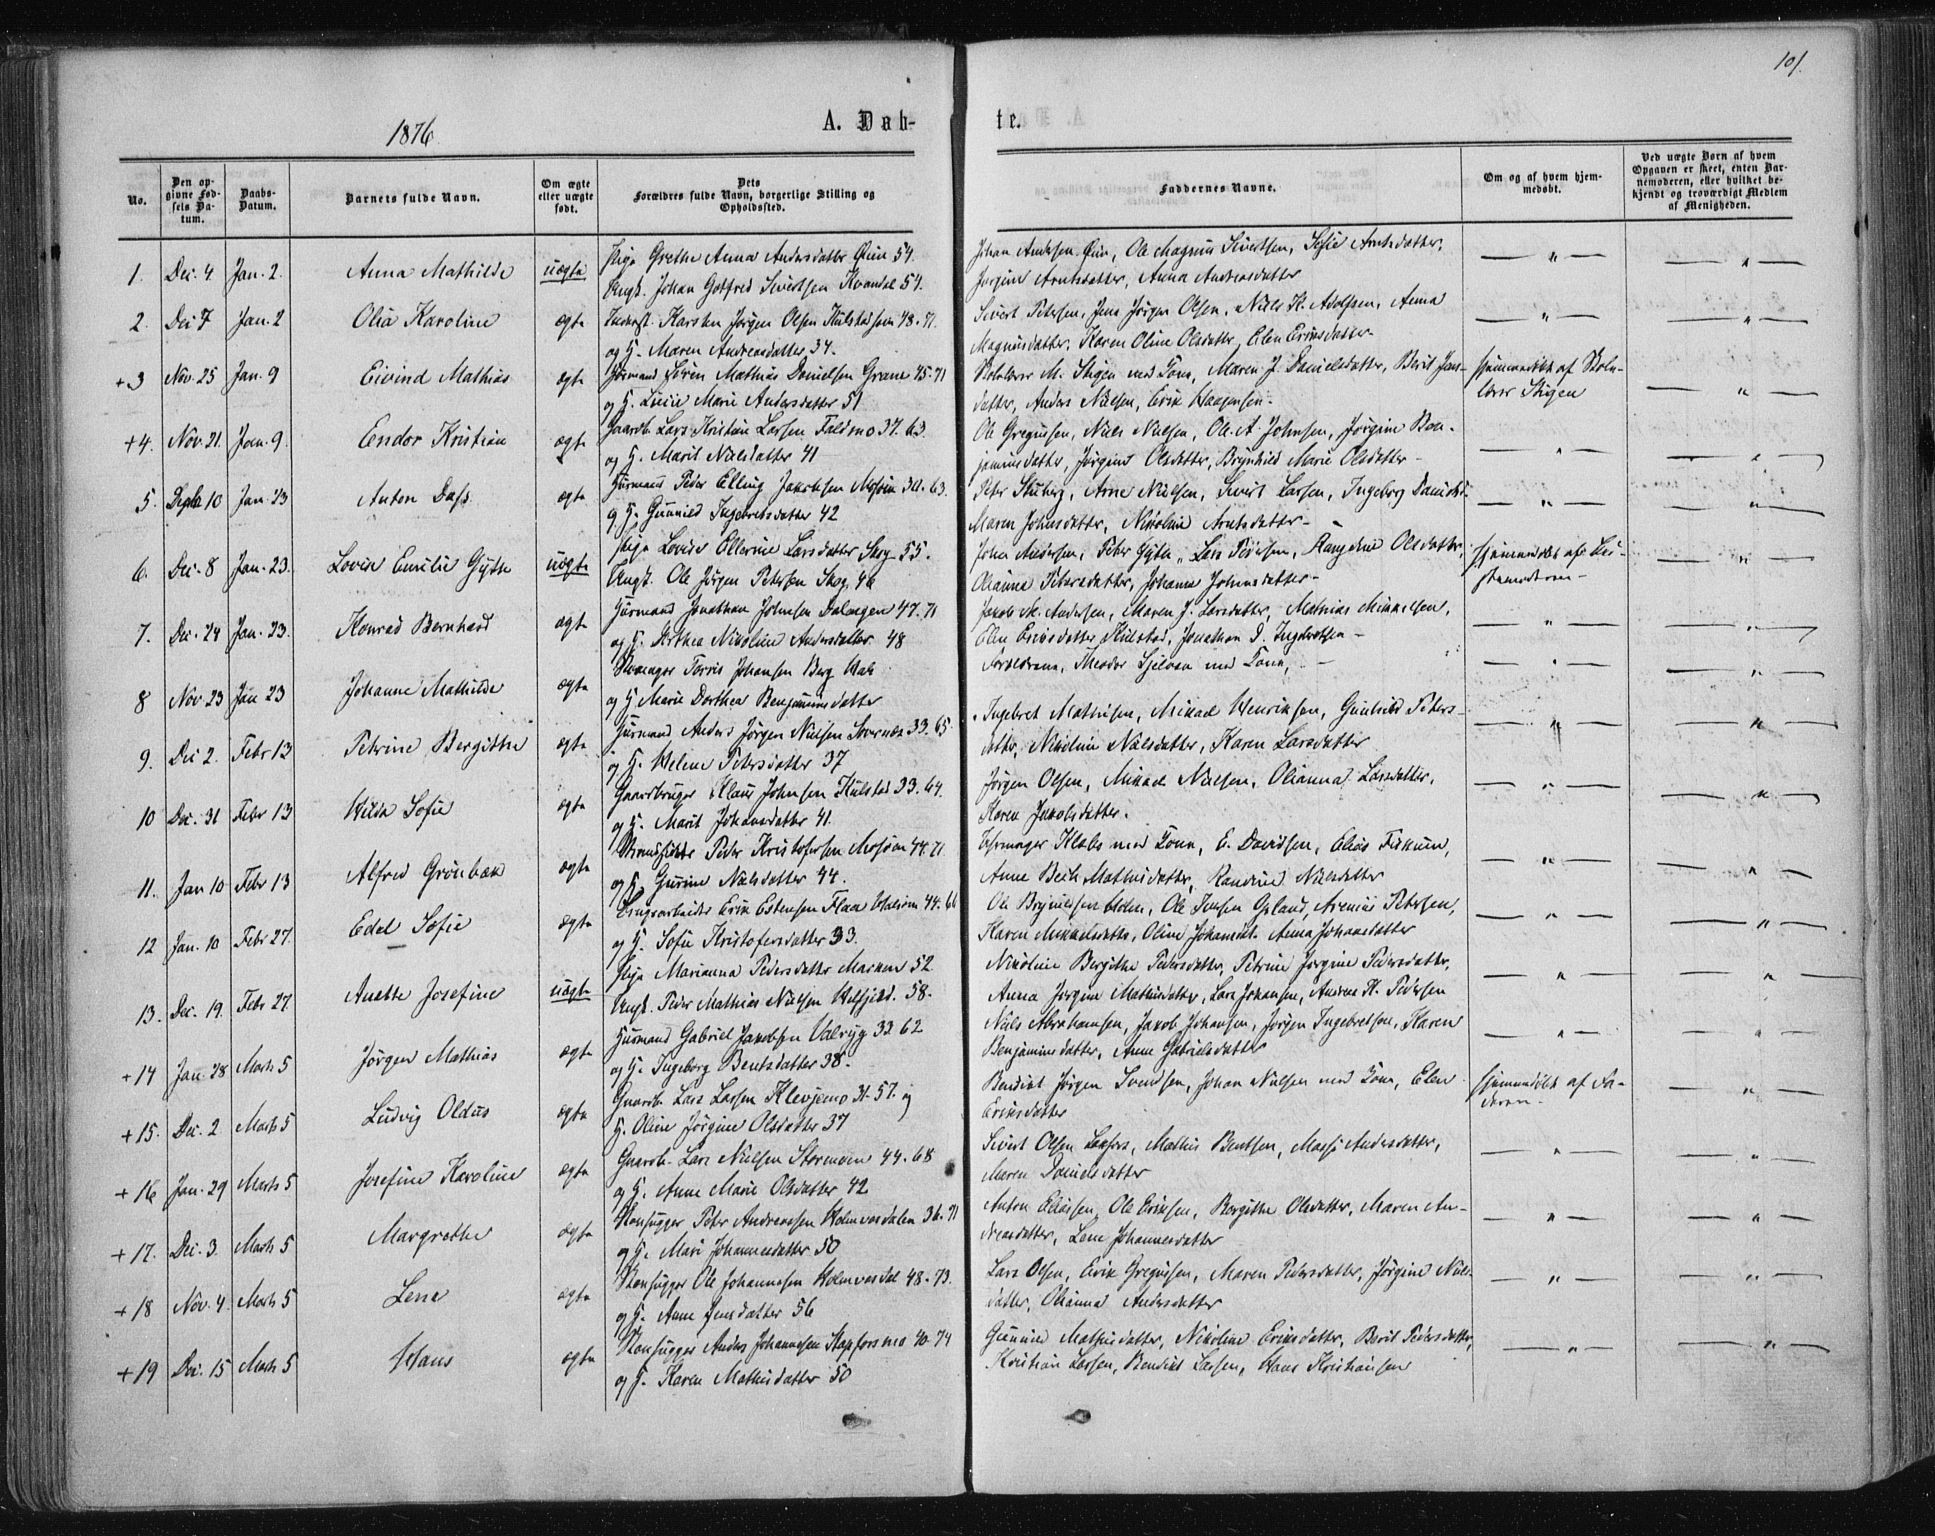 101.
1876
A. Døb-
te.
No.
Den op-
givne Fød-
sels Da-
tum.
Daabs-
Datum.
Barnets fulde Navn.
Om ægte
eller uægte
født.
Dets
Forældres fulde Navn, borgerlige Stilling og
Opholdssted.
Faddernes Navne.
Om og af hvem hjem-
medøbt.
Ved uægte Børn af hvem
Opgaven er skeet, enten Bar-
nemoderen, eller hvilket be-
kjendt og troværdigt Medlem
af Menigheden.
1. Dec. 4 Jan. 2. Anna Mathilde uægte Pige Grethe Anna Andersdatter Øien 54. Johan Andersen Øien, Ole Magnus Sivertsen, Sofie Arntsdatter,
Ungk. Johan Gotfred Sivertsen Kvandal 54. Jørgine Arntsdatter, Anna Andreasdatter
2. Dec 7 Jan. 2 Olia Karoline ægte Karsten Jørgen Olsen Kulstadsjøen 48-71. Sivert Petersen, Jens Jørgen Olsen, Niels K. Adolfsen, Anna
og H. Maren Andreasdatter 34. Magnusdatter, Karen Oline Olsdatter, Elen Eriksdatter
+3 Nov. 25 Jan. 9 Eivind Mathias ægte Husmand Søren Mathias Danielsen Grane 45-71 M. Stigen med Kone, Maren J. Danielsdatter, Berit Jens- hjemmedøbt af Skole-
og H. Lucie Marie Andersdatter 51 datter, Anders Nielsen, Erik Haagensen. lærer Stigen
+4. Nov. 21. Jan. 9. Endor Kristian ægte Gaardb. Lars Kristian Larsen Faldmo 37. 63. Ole Gregusen, Niels Nielsen, Ole A. Johnsen, Jørgine Ben-
og H. Marit Nielsdatter 41 jaminsdatter, Jørgine Olsdatter, Brynhild Marie Olsdatter
5. 10 Jan. 23 Anton Dass ægte Husmand Peder Elling Jakobsen Mosjøen 30. 63. Peter Stuberg, Arne Nielsen, Sivert Larsen, Ingeborg Danielsd.
og H. Gunnild Ingebretsdatter 42 Maren Johnsdatter, Nikoline Arntsdatter
6. Dec. 8 Jan. 23. Lovise Emilie Gytte uægte Pige Lovise Ellerine Larsdatter Skog 55. Johan Andersen, Peter Gytte, Lars Pedersen, Olsdatter, hjemmedøbt af
Ungk. Ole Jørgen Petersen Skog 46 Olianna Petersdatter, Johanna Johnsdatter
7. Dec. 24 Jan. 23. Konrad Bernhard ægte Husmand Jonathan Johnsen Dalaugen 47. 71 Jakob M. Andersen, Maren J. Larsdatter, Mathias Mikkelsen,
og H. Dorthea Nikoline Andersdatter 48 Elen Eriksdatter Kulstad, Jonathan D. Ingebretsen
8 Nov 23 Jan 23 Johanne Mathilde ægte Torris Johansen Berg Forældrene, Theodor med Kone,
og H. Marie Dorthea Benjaminsdatter
9. Dec 2. Febr 13 Petrine Bergithe ægte Husmand Anders Jørgen Nielsen 33. 65. Ingebret Mathisen, Mikael Henriksen, Gunhild Peters-
og H. Helene Petersdatter 37 datter, Nikoline Nielsdatter, Karen Larsdatter
10 Dec. 31 Febr 13 Hilda Sofie ægte Gaardbruger Klaus Johnsen Kulstad 33. 64. Jørgen Olsen, Mikael Nielsen, Olianna Larsdatter,
og H. Marit Johansdatter 41. Karen Jakobsdatter.
11. Jan 10 Febr 13 Alfred Grønbæk ægte Peder Kristofersen Mosjøen 44. 71 med Kone, E. Davidsen, Elias Fiskum,
og H. Gurine Nielsdatter 44. Anne Berit Mathisdatter, Randine Nielsdatter
12 Jan. 10 Febr 27. Edel Sofie ægte Brugsarbeider Erik Estensen Flaa 44. 66 Ole Brynielsen Holm, Ole Iversen, Arenius Petersen,
og H. Sofie Kristofersdatter 33. Karen Mikkelsdatter, Oline Johansdt. Anna Johansdatter
13. Dec. 19. Febr 27. Anette Josefine uægte Pige Marianna Pedersdatter Marken 52. Nikoline Bergithe Pedersdatter, Petrine Jørgine Pedersdatter,
Ungk. Peder Mathias Nielsen Helfjeld. 58. Anna Jørgine Mathisdatter, Lars Johansen, Andreas H. Pedersen
+14 Jan. 28 Marts 5 Jørgen Mathias ægte Husmand Gabriel Jakobsen Valryg 32 62 Niels Abrahamsen, Jakob Johansen, Jørgen Ingebretsen, Karen
og H. Ingeborg Bentsdatter 38. Benjaminsdatter, Anne Gabrielsdatter
+15. Dec. 2 Marts 5 Ludvig Oldus ægte Gaardb. Lars Larsen Klevjemo 31. 57. og Bendikt Jørgen Svendsen, Johan Nielsen med Kone, Elen hjemmedøbt af Fa-
H. Oline Jørgine Olsdatter 37 Eriksdatter deren
+16 Jan. 29 Marts 5 Josefine Karoline ægte Gaardb. Lars Nielsen Stormoen 44. 68 Sivert Olsen, Mathis Bentsen, Andersdatter,
og H. Anne Marie Olsdatter 42 Maren Danielsdatter
+17. Dec. 3. Marts 5 Margrethe ægte Peter Andreassen Holmvasdalen 36. 71 Anton Eliassen, Ole Eriksen, Bergithe Olsdatter, Maren An-
og H. Mari Johannesdatter 50 dreasdatter, Lene Johannesdatter
+18 Nov. 4. Marts 5 Lena ægte Ole Johannesen Holmvasdal 48-73. Lars Olsen, Eirik Gregusen, Maren Pedersdatter, Jørgine Niels-
og H. Anne Jensdatter 56 datter, Olianna Andersdatter
+19 Dec. 15 Marts 5 Hans ægte Anders Johannesen Stapforsmo 40-74 Gunnild Mathisdatter, Nikoline Eriksdatter, Berit Pedersdatter,
og H. Karen Mathisdatter 50 Kristian Larsen, Bendikt Larsen, Hans Kristiansen